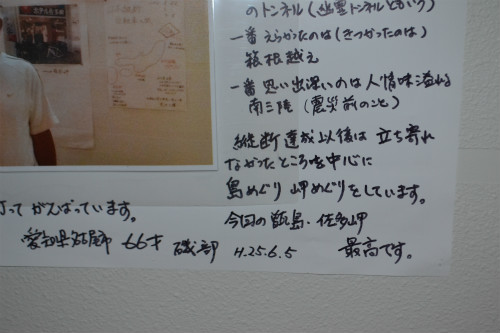 のトンネル(幽霊トンネルともいう)
一番えらかったのは(きつかったのは)
箱根越え
一番思い出深いのは人情味溢れる
南三陸(震災前のこと)
縦断達成以後は立ち寄れ
なかったところを中心に
島めぐり岬めぐりをしています。
今回の甑島・佐多岬
最高です。
ってがんばっています。
愛知県 66才 磯部 H.25.6.5